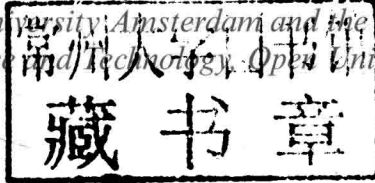 versity Amsterdam and the
ce and Technology, Open Uni
常州大学图书馆
藏书章